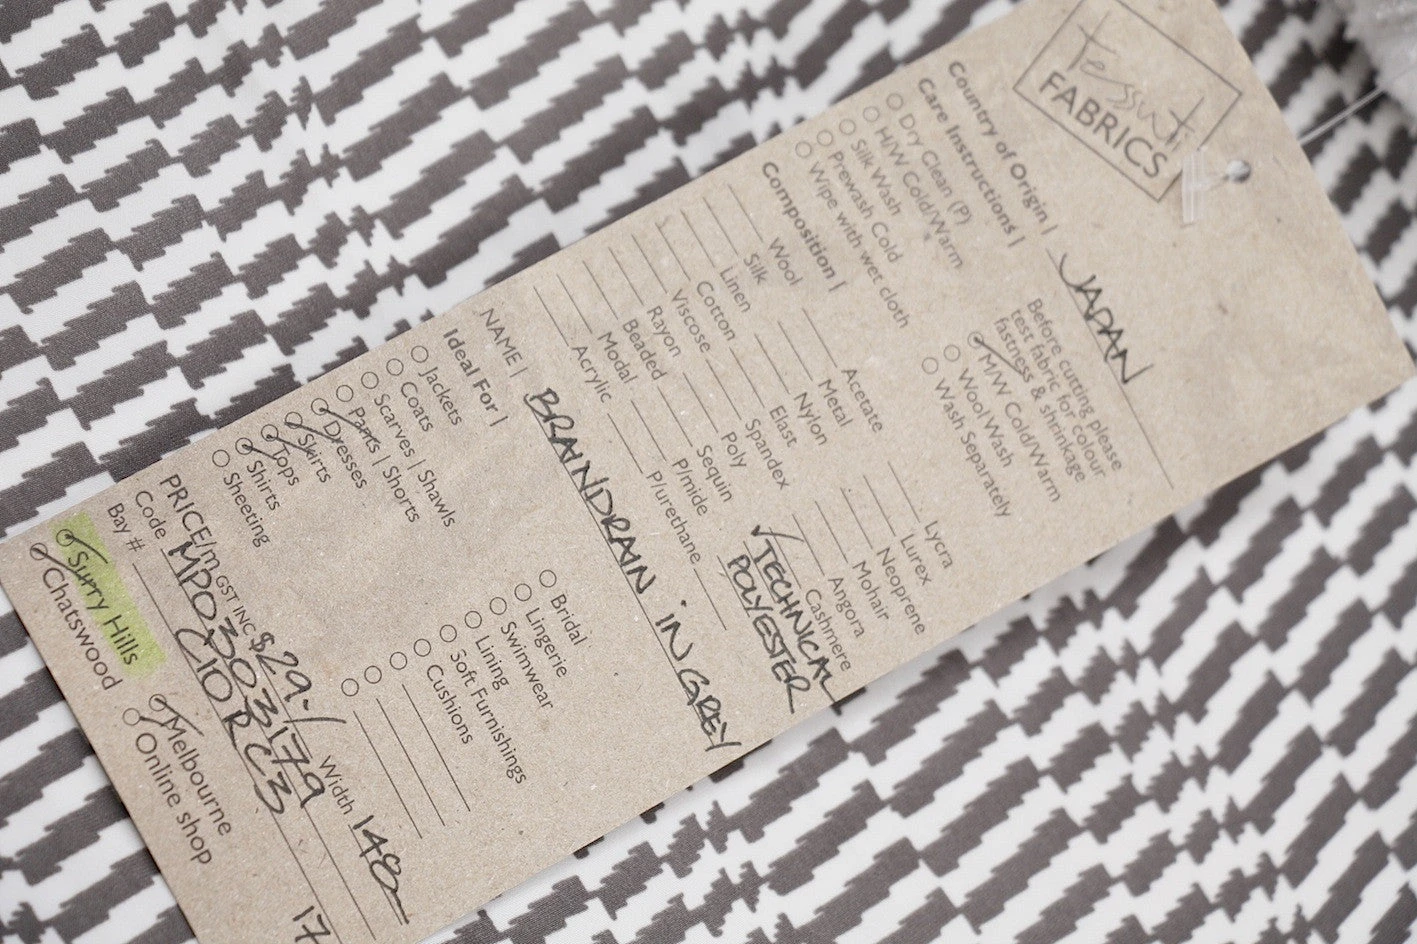 Tessuti
FABRICS
Country of Origin | JAPAN
Care Instructions |
Before cutting please
test fabric for colour
fastness & shrinkage
Dry Clean (P)
H/W Cold/Warm
Silk Wash
Prewash Cold
Wipe with wet cloth
M/W Cold/Warm
Wool Wash
Wash Separately
Composition |
Wool
Silk
Linen
Cotton
Viscose
Rayon
Beaded
Modal
Acrylic
Acetate
Metal
Nylon
Elast
Spandex
Poly
Sequin
P/mide
P/urethane
Lycra
Lurex
Neoprene
Mohair
Angora
Cashmere
TECHNICAL
POLYESTER
NAME | BRAINDRAIN IN GREY
Ideal For |
Jackets
Coats
Scarves | Shawls
Pants | Shorts
Dresses
Skirts
Tops
Shirts
Sheeting
Bridal
Lingerie
Swimwear
Lining
Soft Furnishings
Cushions
PRICE/m GST INC $29-/ Width 148
Code MP03033179
Bay # C10RC3 17
Surry Hills
Chatswood
Melbourne
Online shop